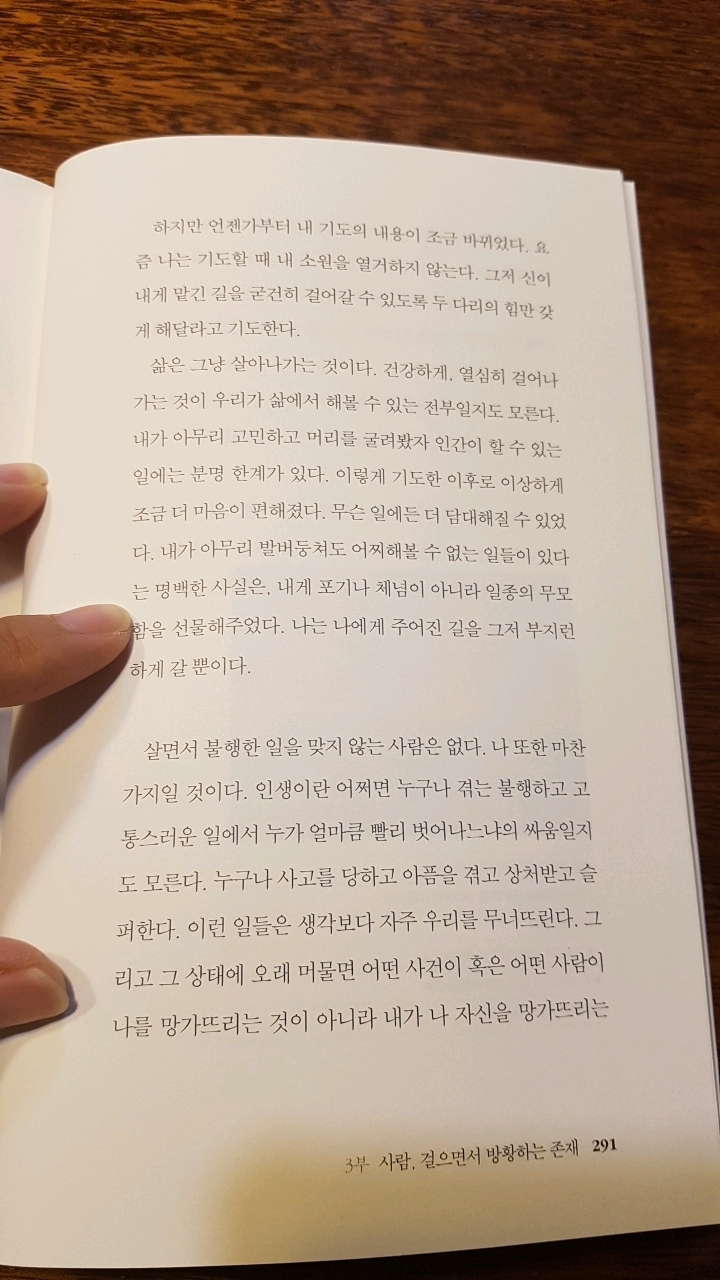 하지만 언젠가부터 내 기도의 내용이 조금 바뀌었다. 요
즘 나는 기도할 때 내 소원을 열거하지 않는다. 그저 신이
내게 맡긴 길을 굳건히 걸어갈 수 있도록 두 다리의 힘만 갖
게 해달라고 기도한다.
삶은 그냥 살아나가는 것이다. 건강하게, 열심히 걸어나
가는 것이 우리가 삶에서 해볼 수 있는 전부일지도 모른다.
내가 아무리 고민하고 머리를 굴려봤자 인간이 할 수 있는
일에는 분명 한계가 있다. 이렇게 기도한 이후로 이상하게
조금 더 마음이 편해졌다. 무슨 일에든 더 담대해질 수 있었
다. 내가 아무리 발버둥쳐도 어찌해볼 수 없는 일들이 있다
는 명백한 사실은, 내게 포기나 체념이 아니라 일종의 무모
함을 선물해주었다. 나는 나에게 주어진 길을 그저 부지런
하게 갈 뿐이다.
살면서 불행한 일을 맞지 않는 사람은 없다. 나 또한 마찬
가지일 것이다. 인생이란 어쩌면 누구나 겪는 불행하고 고
통스러운 일에서 누가 얼마큼 빨리 벗어나느냐의 싸움일지
도 모른다. 누구나 사고를 당하고 아픔을 겪고 상처받고 슬
퍼한다. 이런 일들은 생각보다 자주 우리를 무너뜨린다. 그
리고 그 상태에 오래 머물면 어떤 사건이 혹은 어떤 사람이
나를 망가뜨리는 것이 아니라 내가 나 자신을 망가뜨리는
3부 사람, 걸으면서 방황하는 존재 291